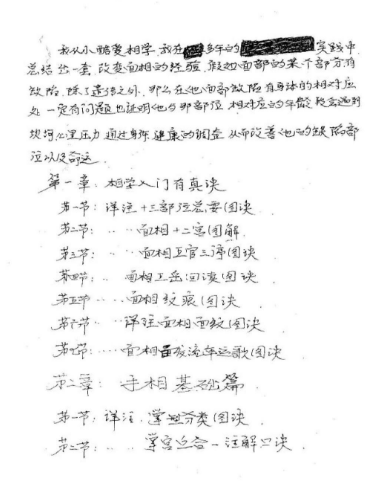 我从小酷爱相学 我在 多年的 实践中
总结出一套 改变面相的经验 假如面部的某个部分有
缺陷 除了遗传之外 那么在他面部缺陷有身体的相对应
处一定有问题 也证明他与那部位 相对应的年龄段会遇到
坎坷心里压力 通过身体 健康的调查 从而改善他的缺陷部
位以及命运.
第一章: 相学入门有真诀
第一节: 详注十三部位总要图诀
第二节: ……面相十二宫图解
第三节: ……面相五官三停图诀
第四节: …面相五岳四渎图诀
第五节 ……面相纹痕图诀
第六节 详注面相面纹图诀
第七节: ……面相 流年运歌图诀
第二章: 手相基础篇
第一节: 详注. 掌型分类图诀
第二节: …… 掌宫 合一注解口诀